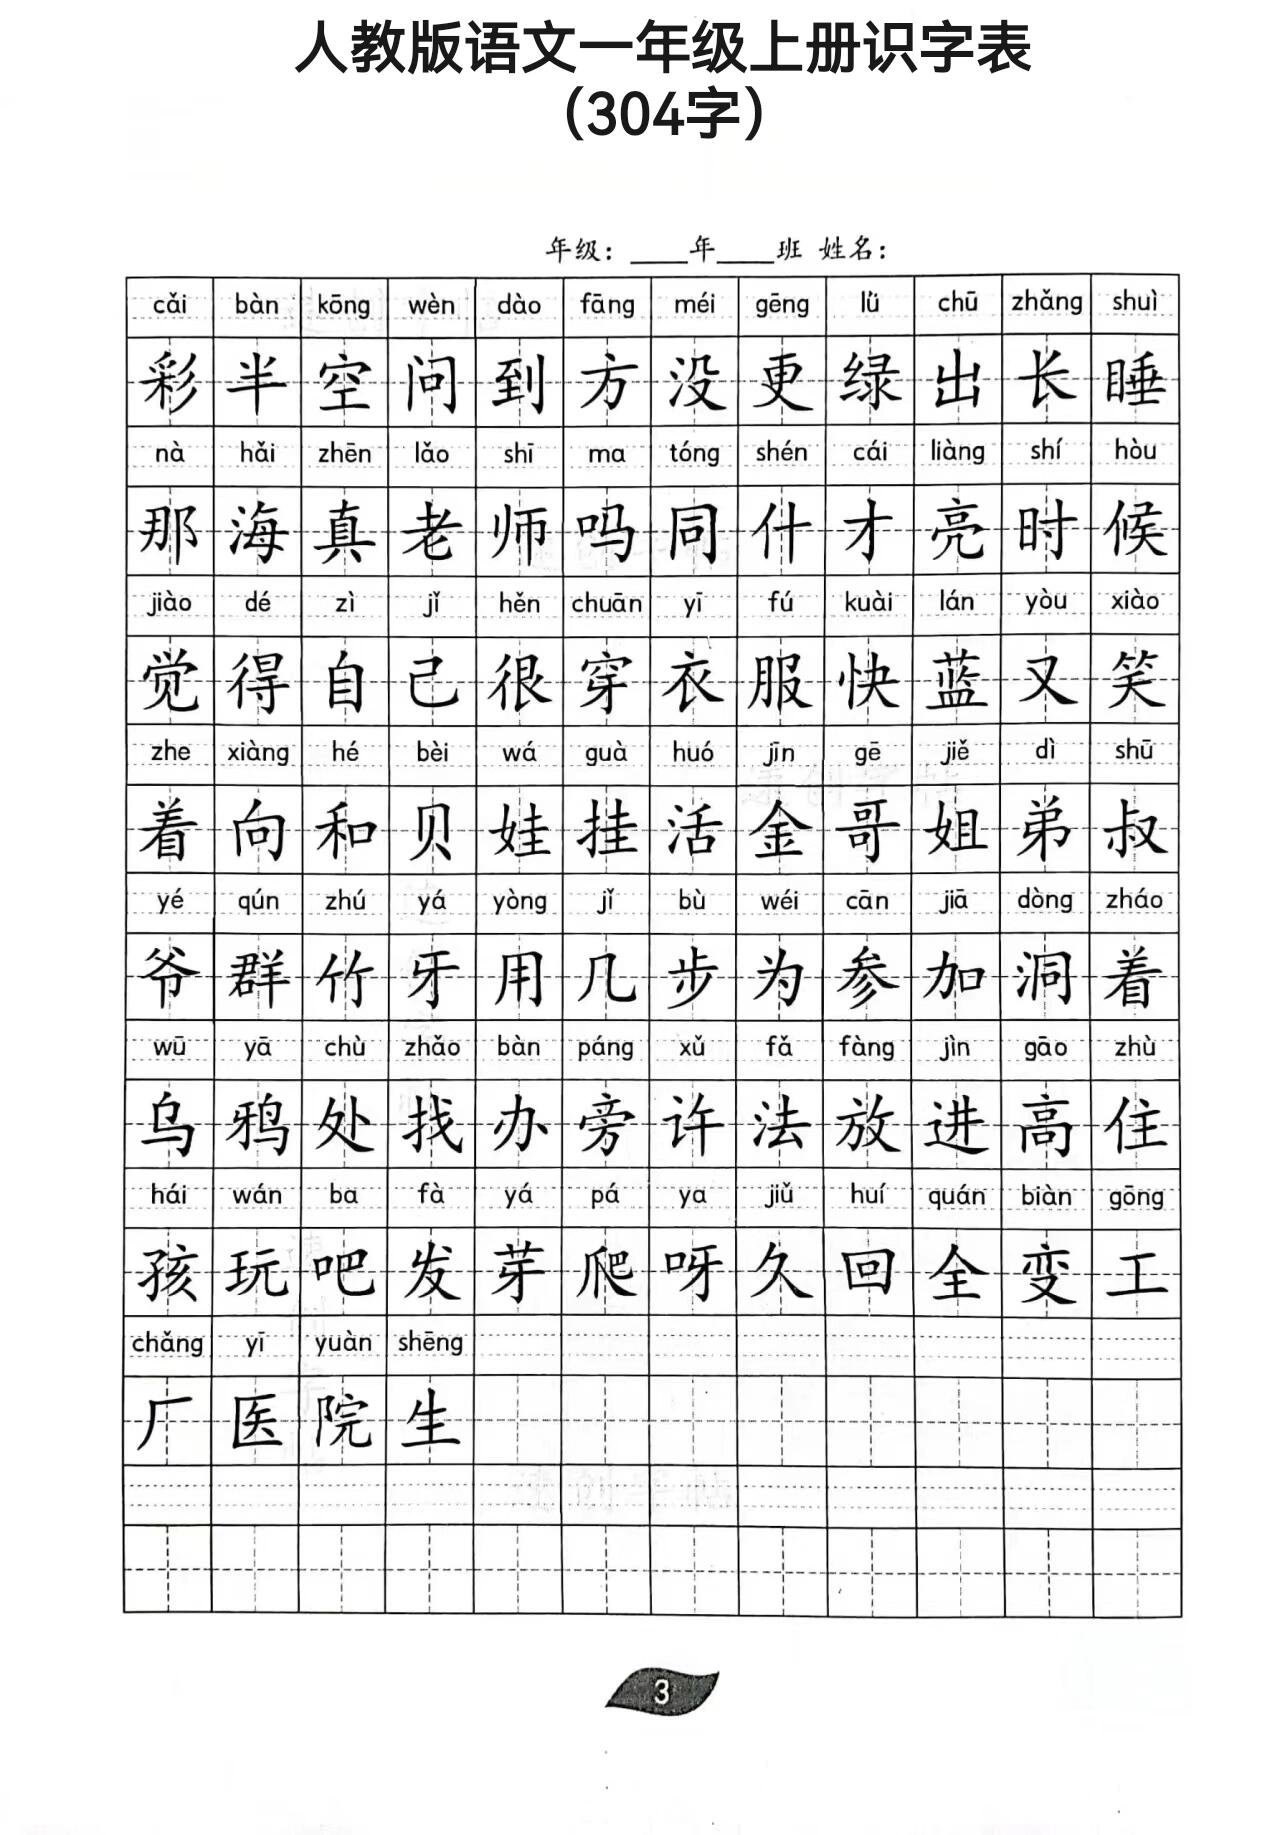 人教版语文一年级上册识字表
（304字）
年级：____年____班 姓名：
cǎi bàn kōng wèn dào fāng méi gēng lǜ chū zhǎng shuì
彩 半 空 问 到 方 没 更 绿 出 长 睡
nà hǎi zhēn lǎo shī ma tóng shén cái liàng shí hòu
那 海 真 老 师 吗 同 什 才 亮 时 候
jiào dé zì jǐ hěn chuān yī fú kuài lán yòu xiào
觉 得 自 己 很 穿 衣 服 快 蓝 又 笑
zhe xiàng hé bèi wá guà huó jīn gē jiě dì shū
着 向 和 贝 娃 挂 活 金 哥 姐 弟 叔
yé qún zhú yá yòng jǐ bù wéi cān jiā dòng zháo
爷 群 竹 牙 用 几 步 为 参 加 洞 着
wū yā chù zhǎo bàn páng xǔ fǎ fàng jìn gāo zhù
乌 鸦 处 找 办 旁 许 法 放 进 高 住
hái wán ba fà yá pá ya jiǔ huí quán biàn gōng
孩 玩 吧 发 芽 爬 呀 久 回 全 变 工
chǎng yī yuàn shēng
厂 医 院 生
3